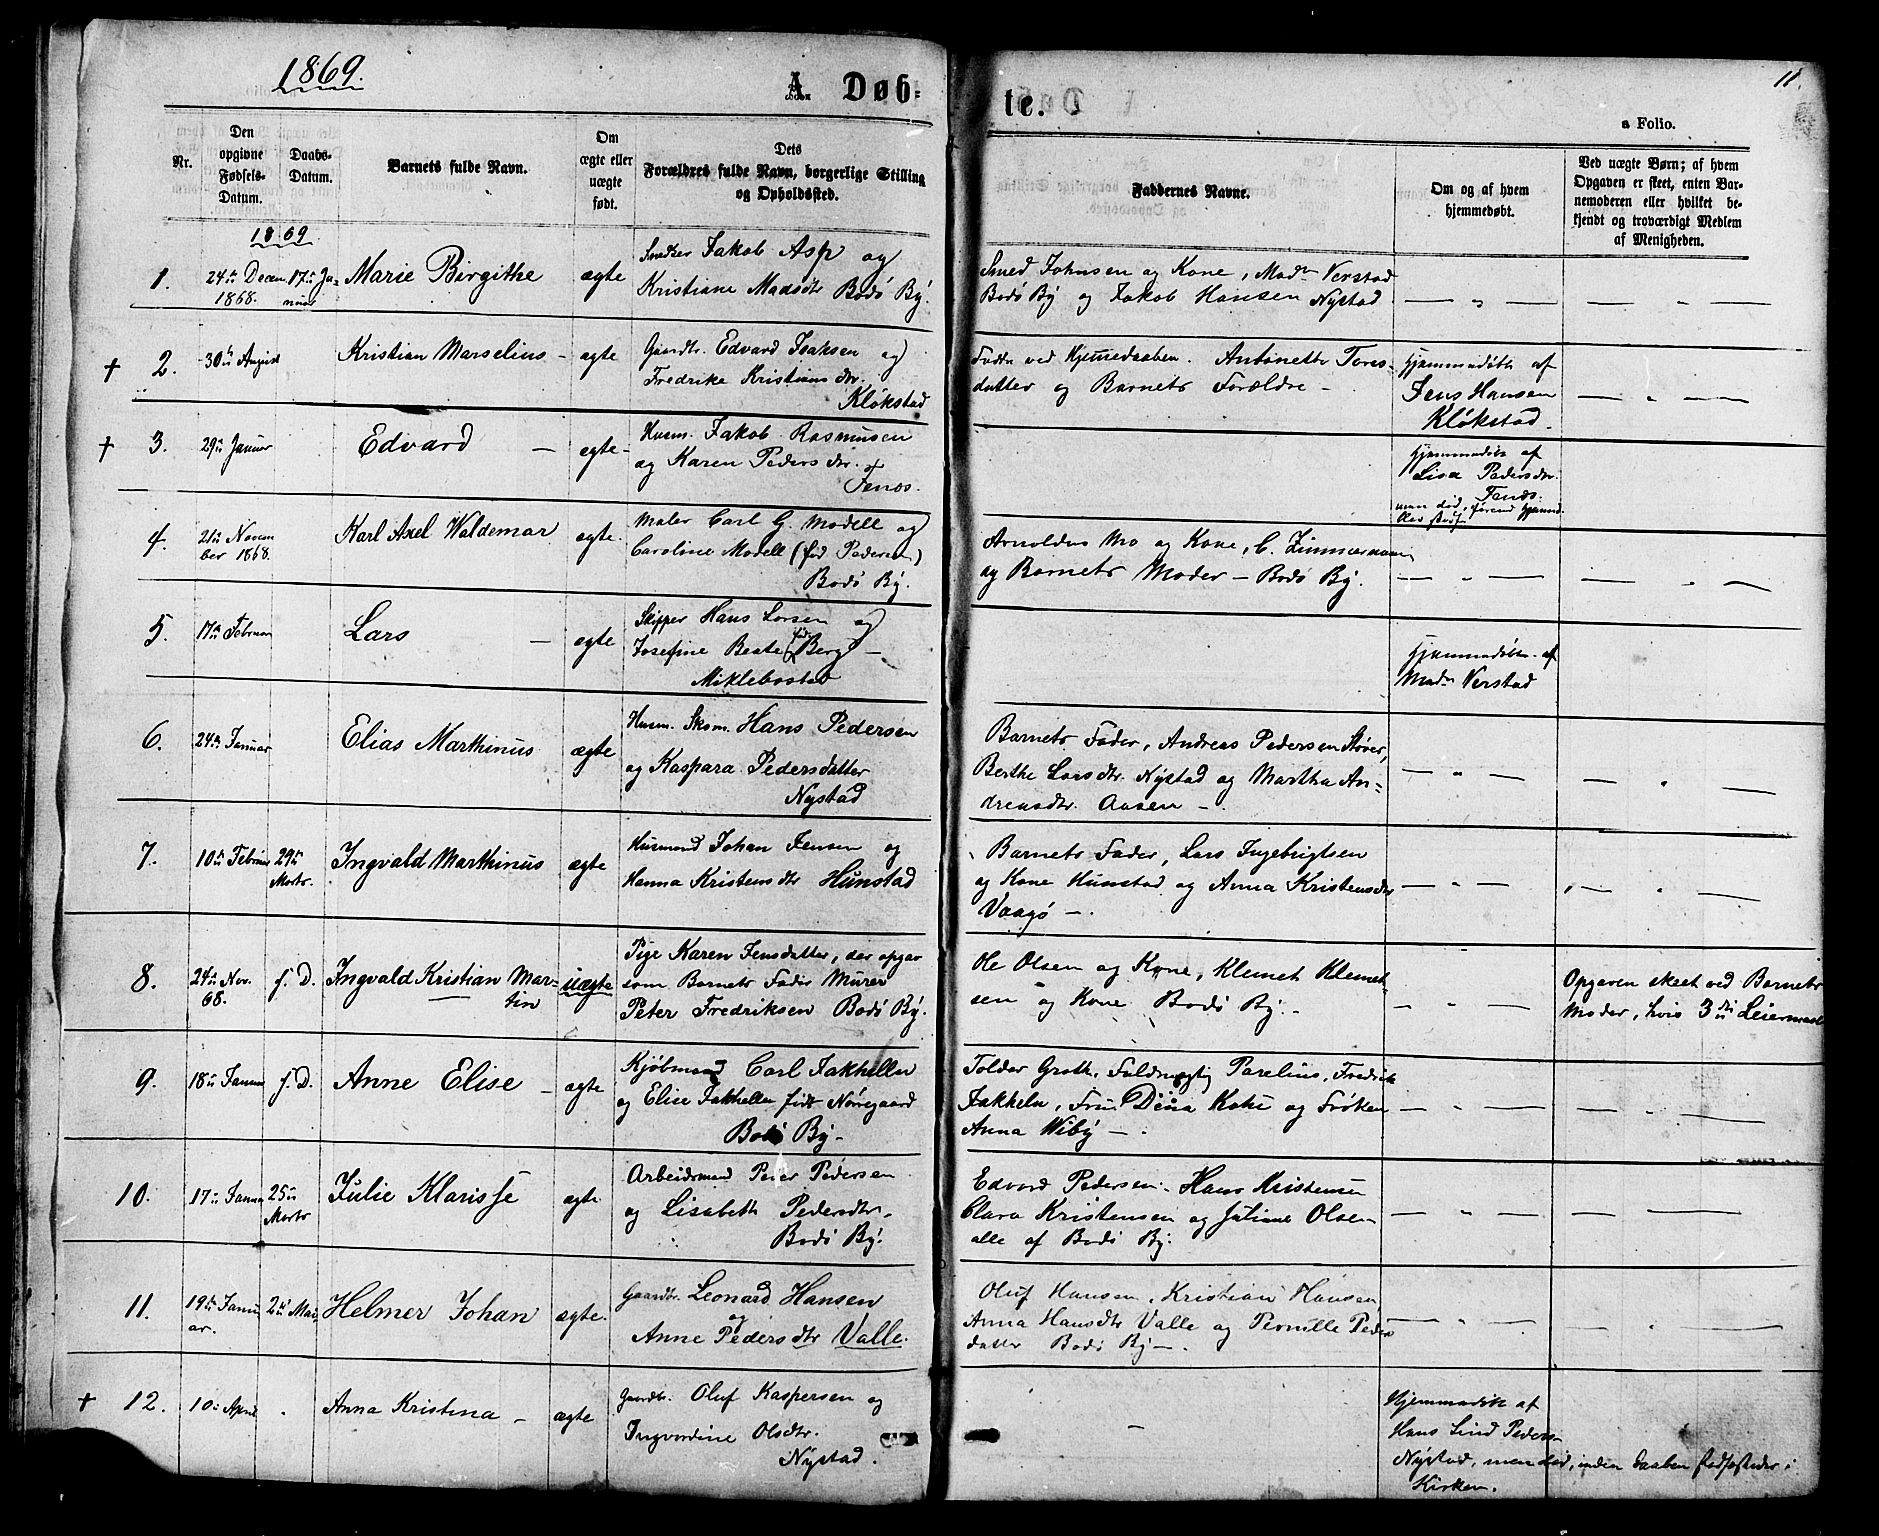 1869.
A Døb=
te.
11.
a Folio.
Nr.
Den opgivne Fødsels-Datum.
Daabs-Datum.
Barnets fulde Navn.
Om ægte eller uægte født.
Dets Forældres fulde Navn, borgerlige Stilling og Opholdssted.
Faddernes Navne.
Om og af hvem hjemmedøbt.
Ved uægte Børn; af hvem Opgaven er skeet, enten Barnemoderen eller hvilket bekjendt og troværdigt Medlem af Menigheden.
1869
1. 24de Decem 1868. 17de Januar Marie Birgithe ægte
Jakob Asp og
Kristiane Madsdtr Bodö By.
Smed Johnsen og Kone, Madm Verstad
Bodö By og Jakob Hansen Nystad
— " —
† 2. 30te August Kristian Marselius — ægte
Gaardbr. Edvard Isaksen og
Fredrike Kristiansdtr.
Klökstad
ved Hjemmedaaben. Antonette Toresdatter og Barnets Forældre —
Hjemmedöbt af
Jens Hansen
Klökstad.
† 3. 29de Januar Edvard — ægte
Husm. Jakob Rasmusen
og Karen Pedersdtr.
Fenæs.
Hjemmedöbt af
Lisa Pedersdtr.
Fenæs.
4. 21de November 1868. Karl Axel Waldemar ægte.
Maler Carl G. Modell og
Caroline Modell (föd Pedersen)
Bodö By.
Arnoldus Mo og Kone, C. Zimmermann
og Barnets Moder — Bodö By.
5. 17de Februar Lars — ægte
Skipper Hans Larsen og
Josefine Beate (födt Berg —
Miklebostad
Hjemmedöbt af
Madm Verstad
6. 24de Januar Elias Marthinus ægte
Husm. Skom. Hans Pedersen
og Kaspara Pedersdatter
Nystad
Barnets Fader, Andreas Pedersen Støver,
Berthe Larsdtr. Nystad og Martha An=
dreasdtr. Aasen —.
7. 10de Februar 29de Marts. Ingvald Marthinus ægte
Husmand Johan Jensen og
Hanna Kristensdtr Hunstad
Barnets Fader, Lars Ingebrigtsen
og Kone Hunstad og Anna Kristensdtr
Vaagö —.
8. 24de Nov. 68. s. D. Ingvald Kristian Martin uægte
Pige Karen Jensdatter, der opgav
som Barnets Fader Murer
Peter Fredriksen Bodö By.
Ole Olsen og Kone, Klemet Klemet-
sen og Kone Bodö By. —
Opgaven skeet ved Barnets
Moder, hvis 3die Leiermaal
9. 18de Januar s. D. Anne Elise — ægte
Kjøbmand Carl Jakhelln
og Elise Jakhelln födt Nörregaard
Bodö By —
Tolder Groth, Fuldmægtig Parelius, Fredrik
Jakhelln, Fru Dina Koht og Fröken
Anna Wiby —.
10. 17de Januar 25de Marts Julie Klarisse ægte
Arbeidsmand Peder Pedersen
og Lisabeth Pedersdtr.
Bodö By.
Edvard Pedersen. Hans Kristensen
Clara Kristensen og Juliane Olsen
alle af Bodö By.
11. 19de Januar. 2den Mai Helmer Johan ægte.
Gaardbr. Leonard Hansen
og
Anne Pedersdtr Valle.
Oluf Hansen, Kristian Hansen
Anna Hansdtr Valle og Pernille Peders
datter Bodö By —.
† 12. 10de April Anna Kristina — ægte
Gaardbr. Oluf Kaspersen og
Ingvardine Olsdtr.
Nystad.
—
Hjemmedöbt af
Hans Lind Peders-
Nystad, men död, inden Daaben stadfæstedes i
Kirken.